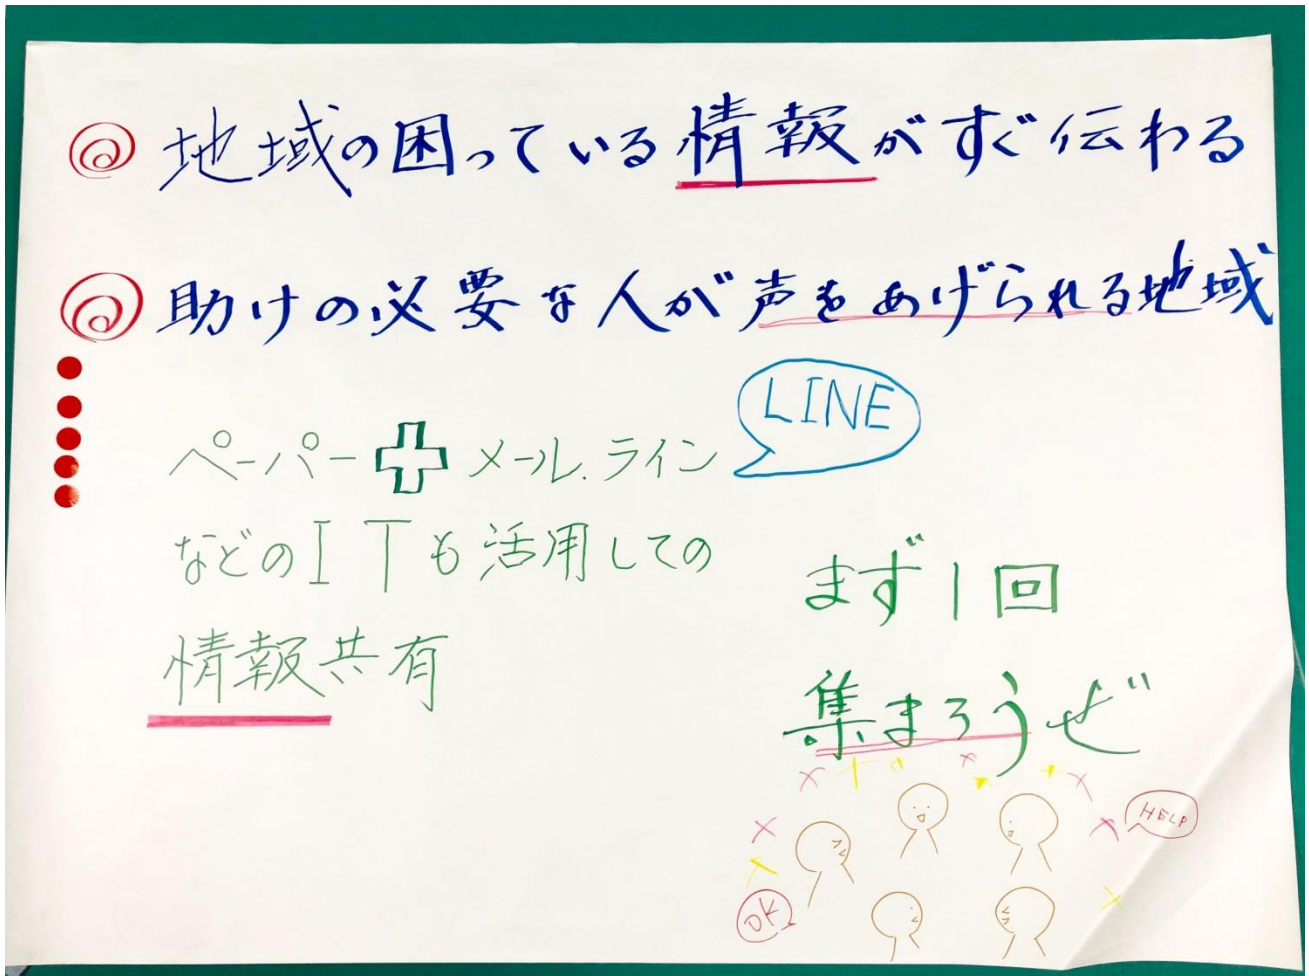 ◎ 地域の困っている情報がすぐ伝わる
◎ 助けの必要な人が声をあげられる地域
LINE
ペーパー＋メール.ライン
などのITも活用しての
情報共有
まず1回
集まろうぜ
HELP
OK